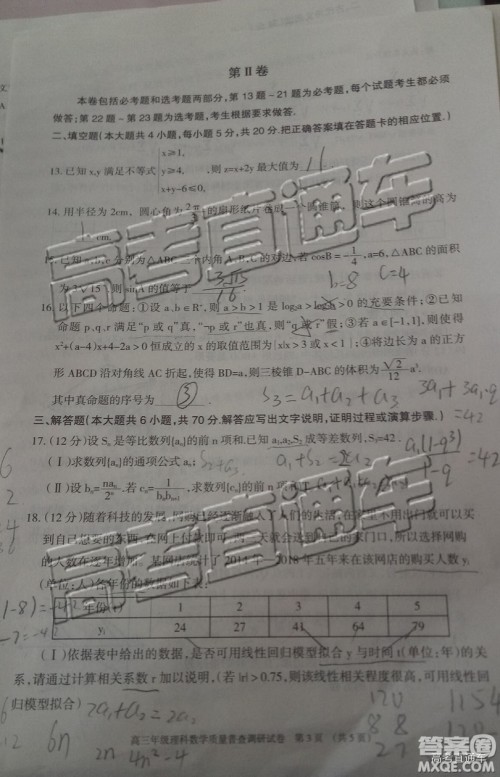 第Ⅱ卷
本卷包括必考题和选考题两部分,第13题~21题为必考题,每个试题考生都必须
做答;第22题~第23题为选考题,考生根据要求做答.
二、填空题(本大题共4小题,每小题5分,共20分.把正确答案填在答题卡的相应位置.)
x≥1,
13.已知x,y满足不等式 y≥4, 则z=x+2y最大值为 11
x+y-6≤0,
14.用半径为2cm、圆心角为 的扇形纸片卷成一个圆锥筒,则这个圆锥筒的高为
cm.
15.已知a,b,c分别为△ABC三个内角A,B,C的对边,若cosB=-1/4,a=6,△ABC的面积
为3√15,则sinA的值等于 3√15/16 b=8 c=4
16.以下四个命题:①设a,b∈R+,则a>b>1是log a>log b>0的充要条件;②已知
命题p,q,r满足“p或q”真,“¬p或r”也真,则“q或r”假;③若a∈[-1,1],则使得
x²+(a-4)x+4-2a>0恒成立的x的取值范围为{x|x>3或x<1};④将边长为a的正方
形ABCD沿对角线AC折起,使得BD=a,则三棱锥D-ABC的体积为√2/12 a³.
其中真命题的序号为 ③ S3=a1+a2+a3
三、解答题(本大题共6小题,共70分.解答应写出文字说明,证明过程或演算步骤.) =42
17.(12分)设Sn是等比数列{an}的前n项和,已知a1,a2,S2成等差数列,S3=42.
(Ⅰ)求数列{an}的通项公式an; S2+a3 a1+S2=
(Ⅱ)设bn=nan/2n.若cn=1/(bnbn+1),求数列{cn}的前n项和Tn. =42
18.(12分)随着科技的发展,网购已经逐渐融入了人们的生活.在家里不用出门就可以买
到自己想要的东西,在网上付款即可,两三天就会送到自己的家门口,所以选择网购
的人数在逐年增加.某网店统计了2014年—2018年五年来在该网店的购买人数yi
(单位:人)各年份的数据如下表:
年份(t) 1 2 3 4 5
yi 24 27 41 64 79
(Ⅰ)依据表中给出的数据,是否可用线性回归模型拟合y与时间t(单位:年)的关
系,请通过计算相关系数r加以说明,(若|r|>0.75,则该线性相关程度很高,可用线性回
归模型拟合) 2a1+a2=2a2 120 1154
6n 2n 4n²-4 88
高三年级理科数学质量普查调研试卷 第3页 (共5页)
高考直通车
高考直通车